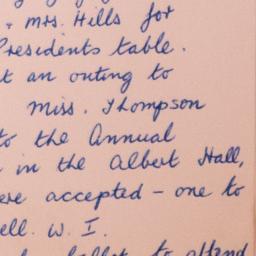 . Mrs. Hills for
Presidents table.
t an outing to
Miss. Thompson
to the Annual
in the Albert Hall,
ere accepted - one to
ell. W. I.
ballot to attend